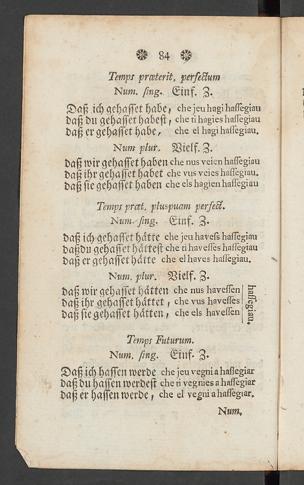 84
Temps præterit, perfectum
Num. sing. Einf. Z.
Daß ich gehasset habe, che jeu hagi hassegiau
daß du gehasset habest, che ti hagies hassegiau
daß er gehasset habe, che el hagi hassegiau.
Num plur. Vielf. Z.
daß wir gehasset haben che nus veien hassegiau
daß ihr gehasset habet che vus veies hassegiau.
daß sie gehasset haben che els hagien hassegiau
Temps præt. pluspuam perfect.
Num. sing. Einf. Z.
daß ich gehasset hätte che jeu havess hassegiau
daß du gehasset hättest che ti havesses hassegiau
daß er gehasset hätte che el haves hassegiau.
Num. plur. Vielf. Z.
daß wir gehasset hätten che nus havessen
daß ihr gehasset hättet, che vus havesses
daß sie gehasset hätten, che els havessen
hassegiau.
Temps Futurum.
Num. sing. Einf. Z.
Daß ich hassen werde che jeu vegni a hassegiar
daß du hassen werdest che ti vegnies a hassegiar
daß er hassen werde, che el vegni a hassegiar.
Num.